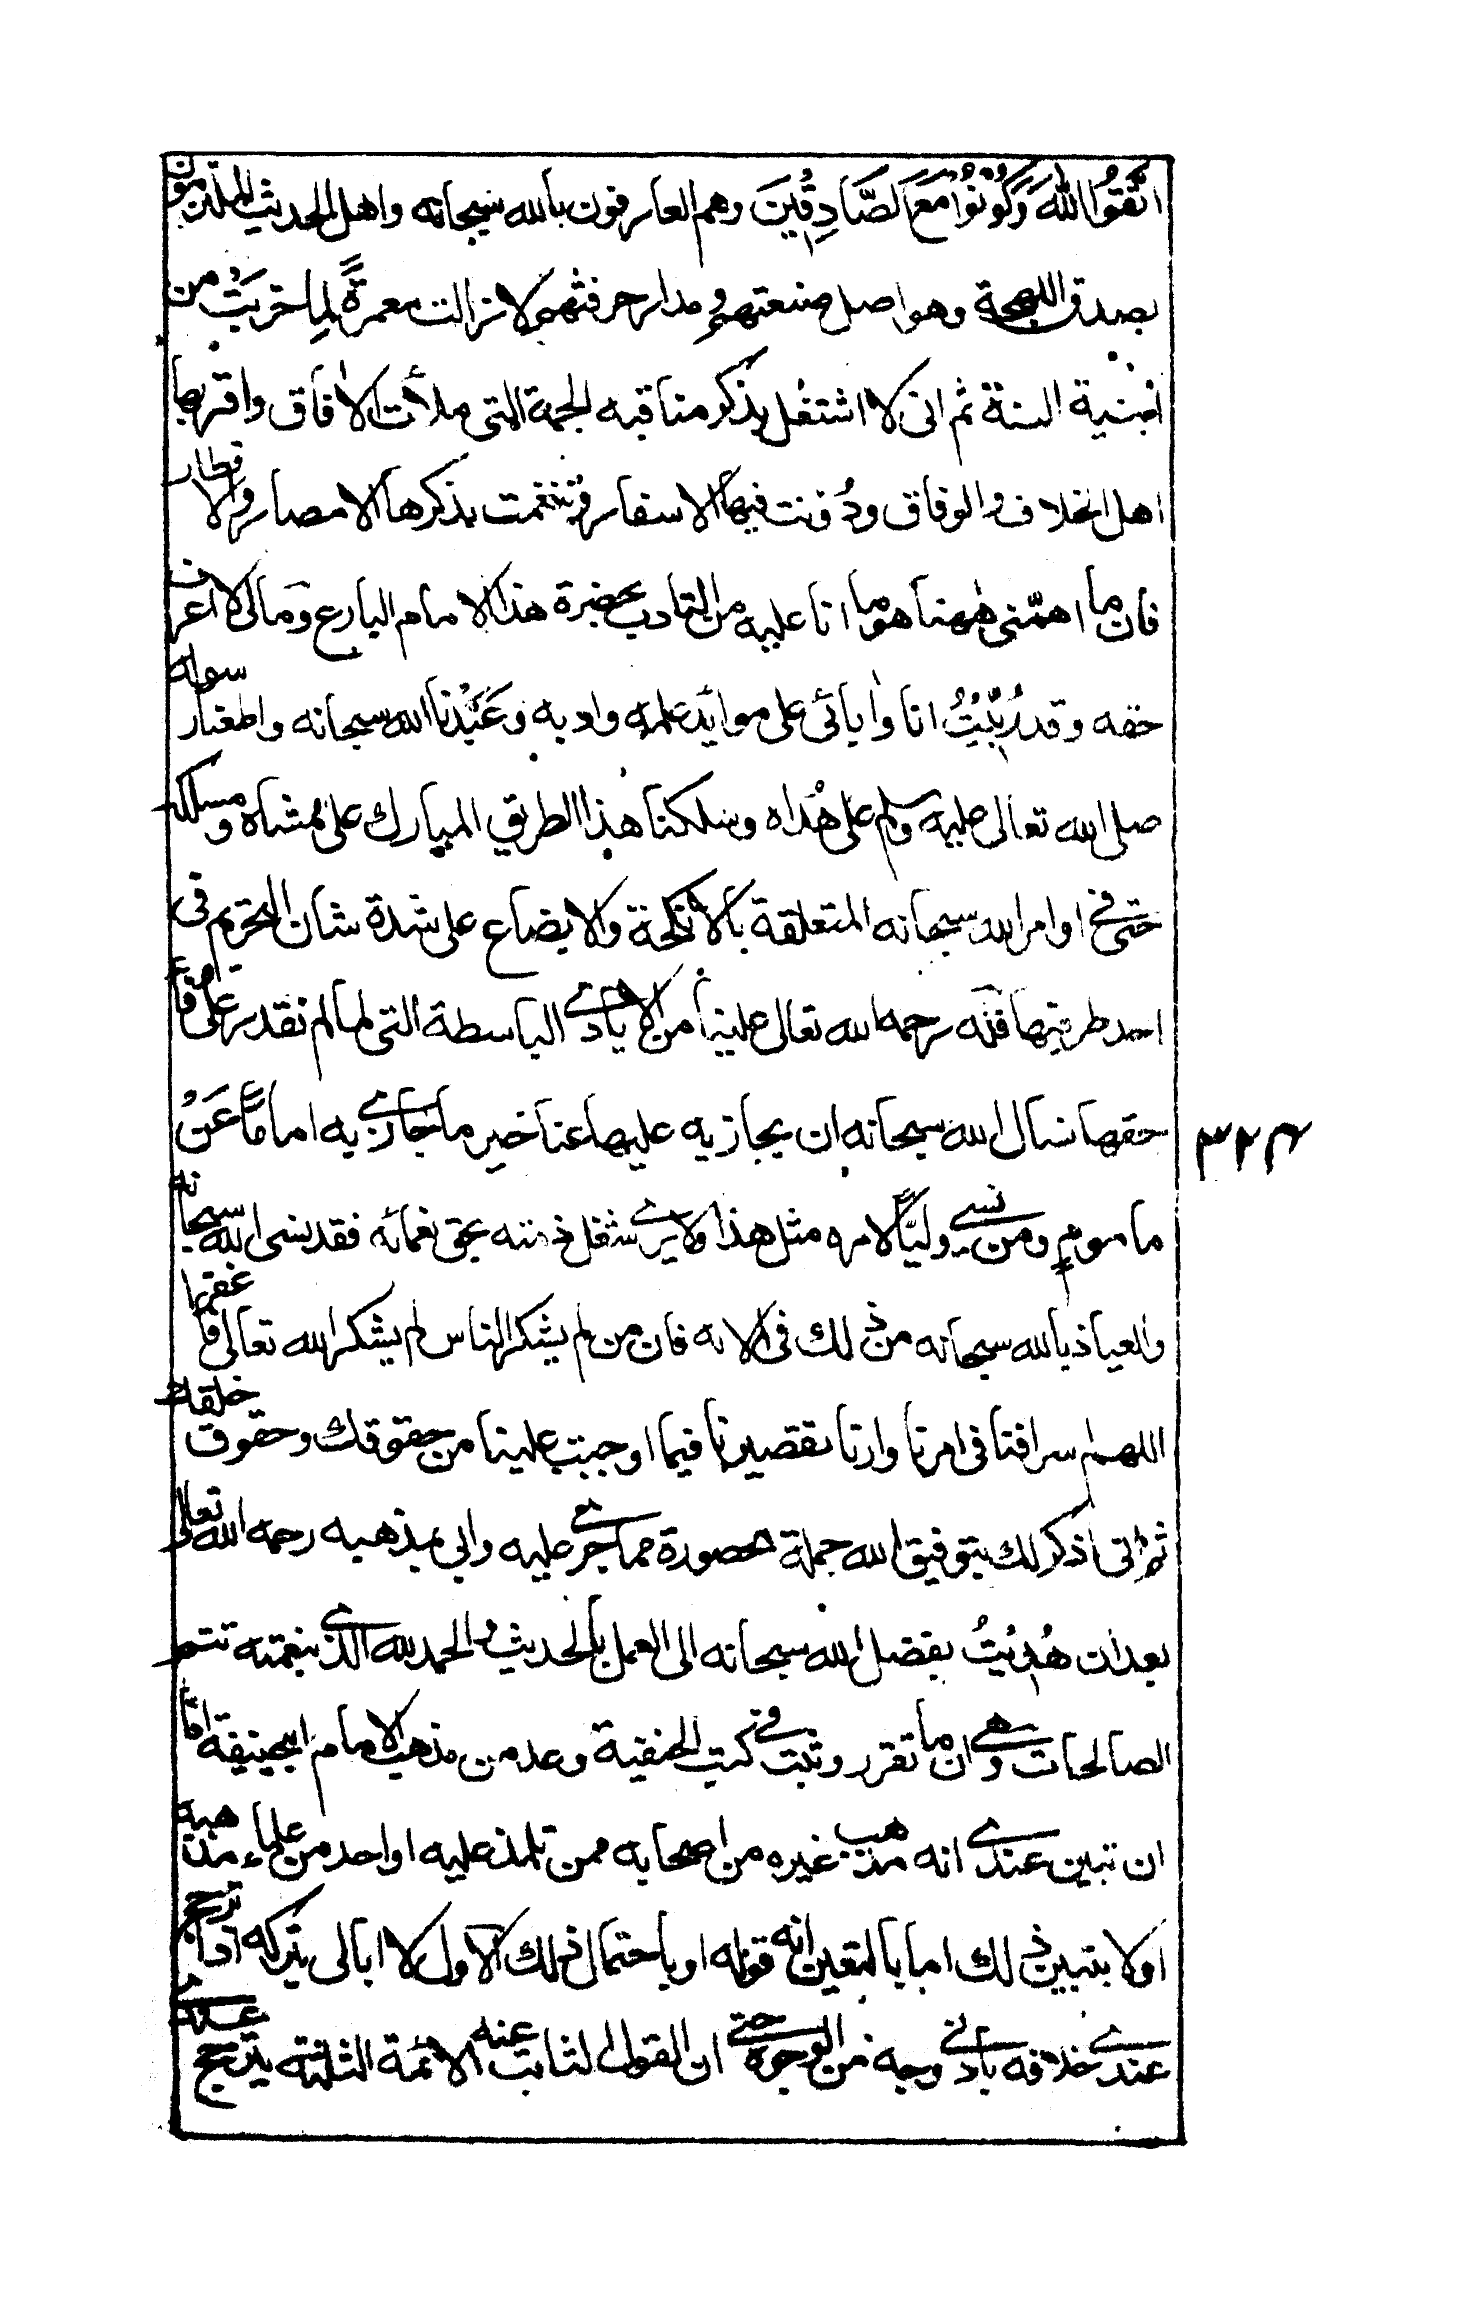 اتَّقُوا اللهَ وَكُونُوا مَعَ الصَّادِقِينَ وهم العارفون بالله سبحانه واهل الحديث الملتزمون
بصدق اللهجة وهو اصل صنعتهم ومدار حرفتهم لا زالت معمرةً لِما خربَتْ من
ابنية السنة ثم انى لا اشتغل بذكر مناقبه الجمة التى ملأت الآفاق واقر بها
اهل الخلاف والوفاق ودُوّنت فيها الاسفار وتنغمت بذكرها الامصار والاقطار
فان ما اهمّنى ههنا هو ما انا عليه من التادب بحضرة هذا الامام البارع وَمالى لا اعرف
حقه وقد رُبِّيتُ انا وآبائى على موائد علمه وادبه وعَبَدْنا الله سبحانه واطعنا رسوله
صلى الله تعالى عليه وسلم على هُداه وسلكنا هذا الطريق المبارك على ممشاه ومسلكه
حتى فى اوامر الله سبحانه المتعلقة بالانكحة والابضاع على شدة شان التحريم فى
احد طرفيها فلَلّه رحمه الله تعالى علينا من الايادى الباسطة التى لما لم نقدر على وفاء
حقها نسال الله سبحانه ان يجازيه عليها عنا خير ما جازى به اماماً عَنْ
مامومٍ ومن نسى وليّاً لامره مثل هذا ولا يرى شغل ذمته بحق نعمائه فقد نسى الله سبحانه
والعياذ بالله سبحانه من ذلك فى آلائه فان من لم يشكر الناس لم يشكر الله تعالى فاغفرنا
اللهم اسرافنا فى امرنا وارنا تقصيرنا فيما اوجبت علينا من حقوقك وحقوق خلقك
ثم انى اذكر لك بتوفيق الله جملة محصورة مما جرى عليه دابى بمذهبه رحمه الله تعالى
بعد ان هُدِيتُ بفضل الله سبحانه الى العمل بالحديث والحمد لله الذى بنعمته تتم
الصالحات وهى ان ما تقرر وثبت فى كتب الحنفية وعد من مذهب الامام ابيحنيفة اما
ان تبين عندى انه مذهب غيره من اصحابه ممن تلمذ عليه او واحد من علماء مذهبه
اولا بتبين ذلك اما بالتعين انه قوله او باحتمال ذلك الاول لا ابالى بتركه اذا ترجح
عندى خلافه بادنى وجه من الوجوه حتى ان القول الثابت عنه الائمة الثلثة يترجح عندى
٣٢٤